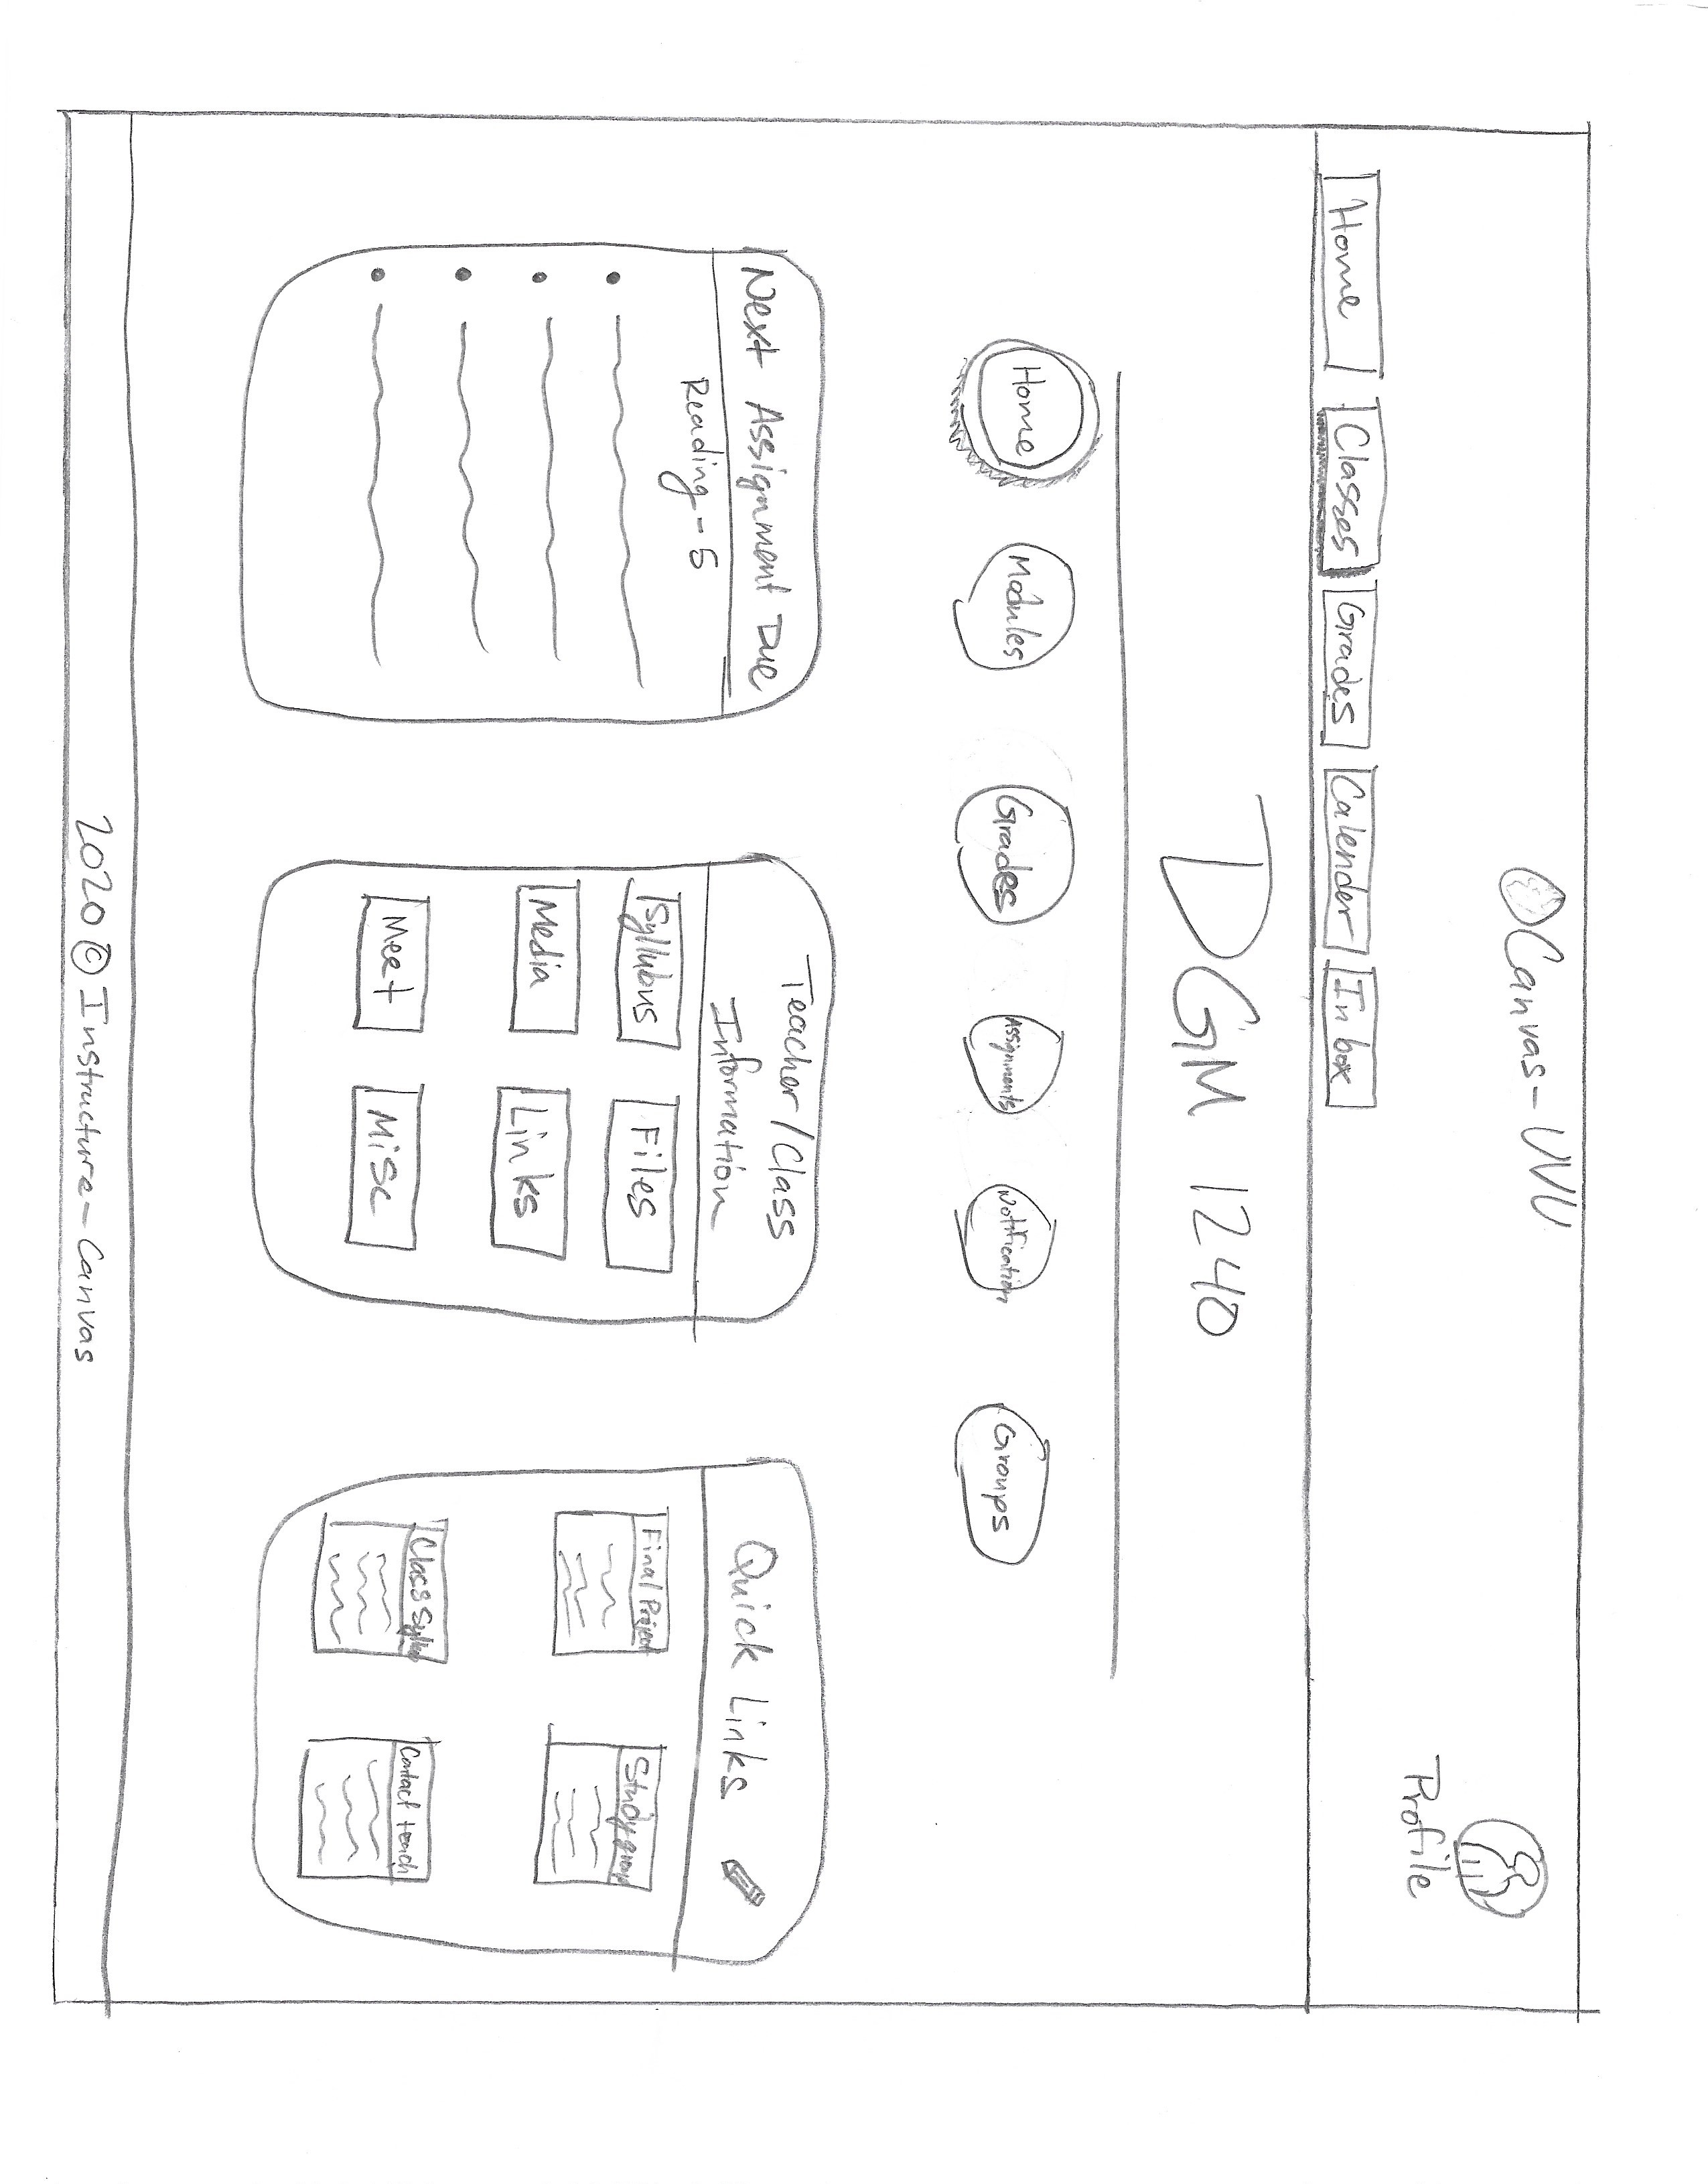 Canvas-UVU
Profile
Home Classes Grades Calender Inbox
DGM 1240
Home Modules Grades Assignments Notification Groups
Next Assignment Due
Reading-5
Teacher/Class
Information
Syllubus Files
Media Links
Meet Misc
Quick Links
Final Project Study group
Class Contact teach
2020 © Instructure-Canvas